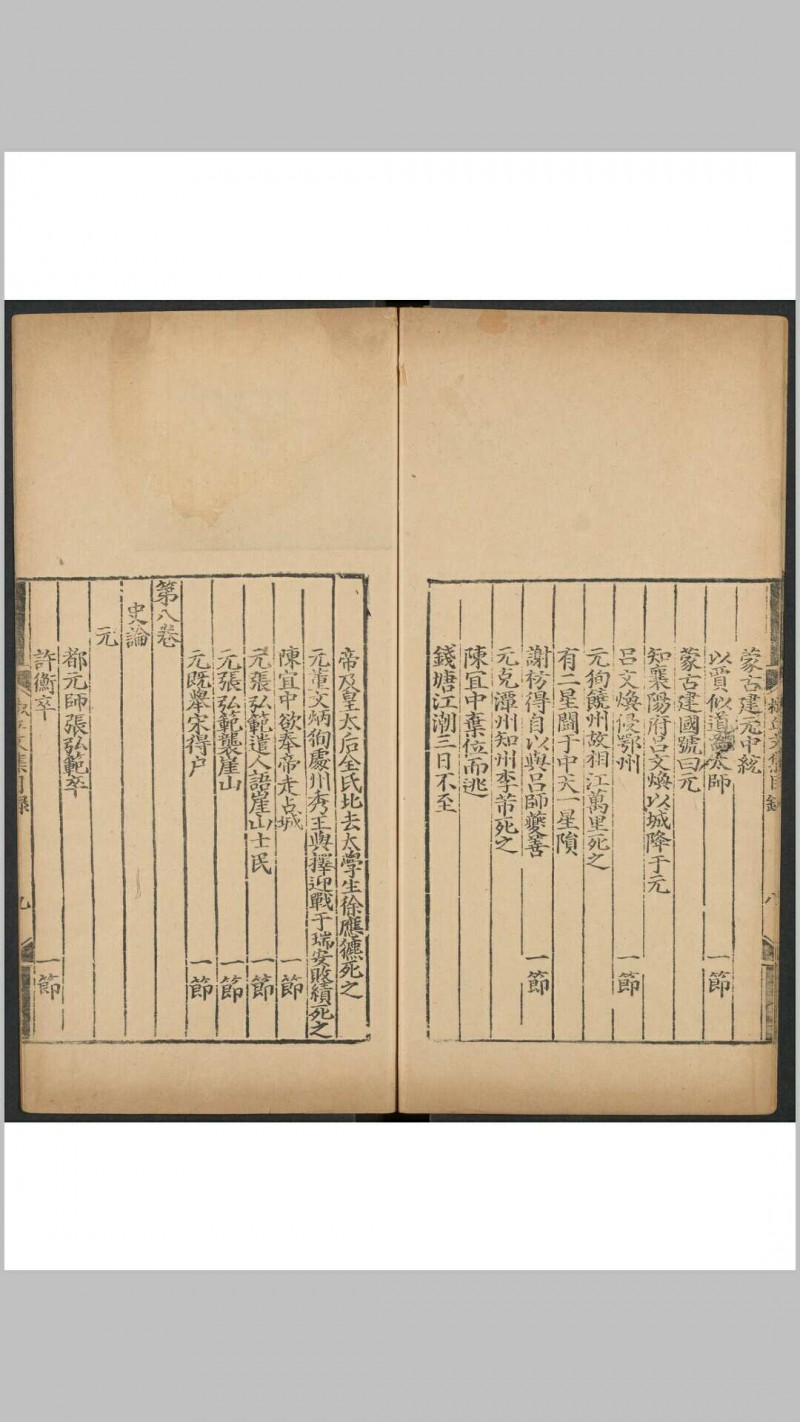 蒙古建元中統
以賈似道為太師 一節
蒙古建國號曰元
知襄陽府呂文煥以城降于元
呂文煥侵鄂州 一節
元徇饒州故相江萬里死之
有二星鬪于中天一星隕
謝枋得自以與呂師夔善 一節
元克潭州知州李芾死之
陳宜中棄位而逃
錢塘江潮三日不至
帝及皇太后全氏北去太學生徐應鑣死之
元董文炳徇處州秀王與擇迎戰于瑞安敗績死之
陳宜中欲奉帝走占城 一節
元張弘範遣人語崖山士民 一節
元張弘範襲崖山 一節
元既舉宋得户 一節
第八卷
史論
元
都元師張弘範卒
許衡卒 一節
文集目録
九